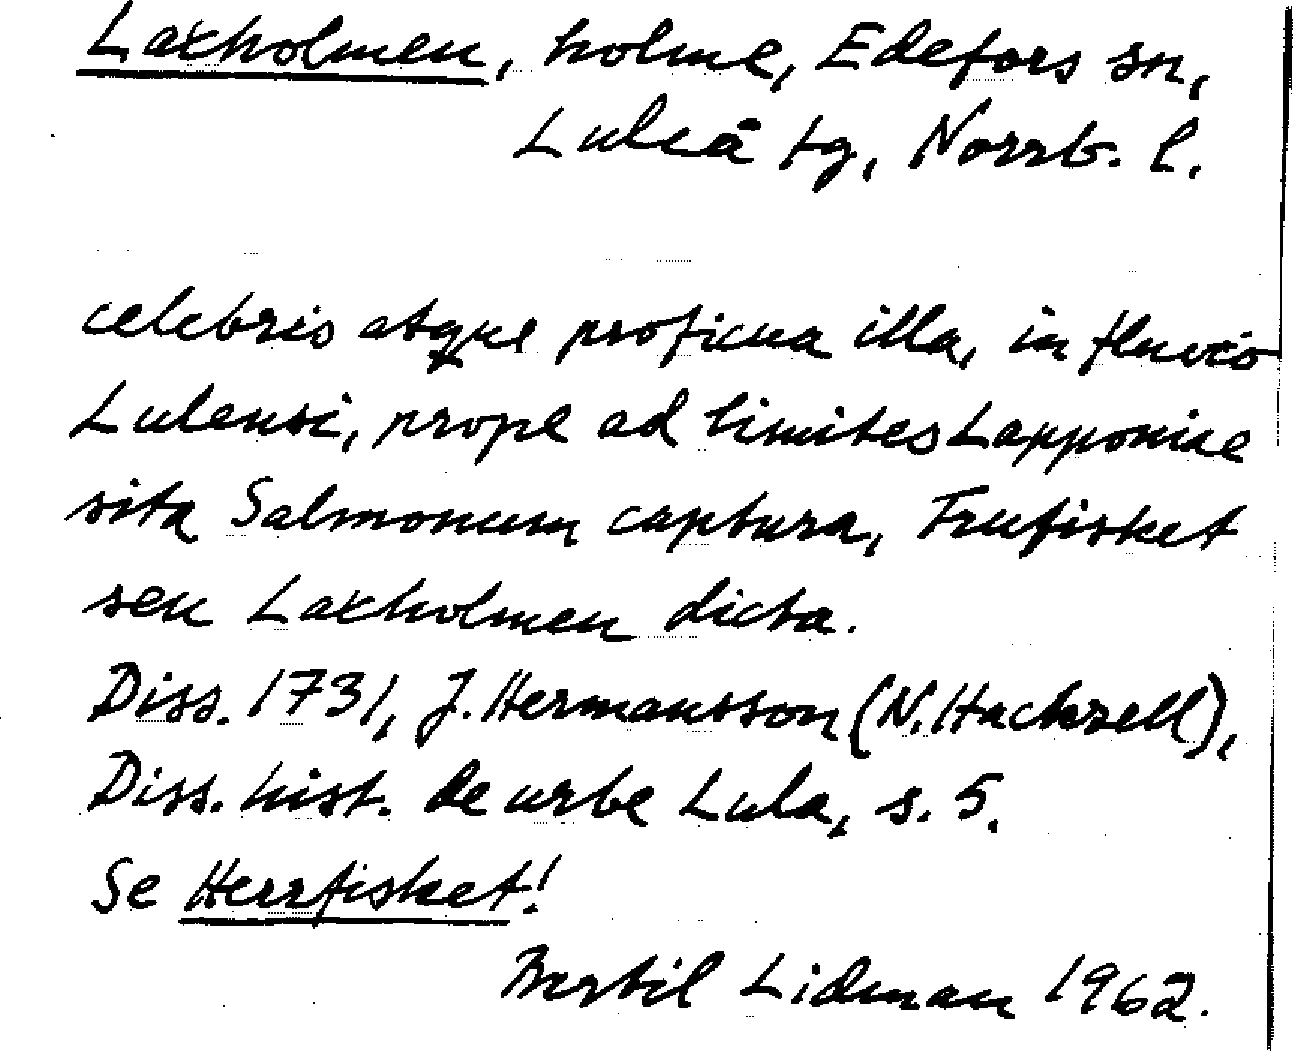 Laxholmen, holme, Edefors sn,
Luleå tg, Norrb. l.
celebris atque proficua illa, in fluvio
Lulensi, prope ad limites Lapponiae
sita Salmonum captura, Frufisket
seu Laxholmen dicta.
Diss. 1731, J. Hermansson (N. Hackzell),
Diss. hist. de urbe Lula, s. 5.
Se Herrfisket!
Bertil Lidman 1962.